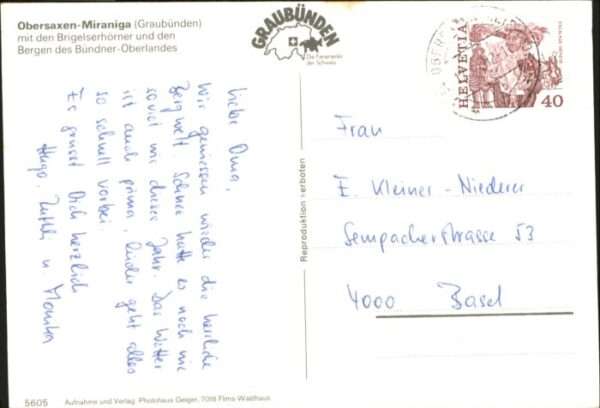 Obersaxen-Miraniga (Graubünden)
mit den Brigelserhörner und den
Bergen des Bündner-Oberlandes
GRAUBÜNDEN
Die Ferienecke
der Schweiz
HELVETIA
40
Liebe Oma,
Wir geniessen wieder die herrliche
Bergwelt. Schnee hatte es noch nie
soviel wie dieses Jahr. Das Wetter
ist auch prima, leider geht alles
so schnell vorbei.
Es grüsst Dich herzlich
Hugo, Ruthli u. Monika
Reproduktion verboten
Frau
E. Kleiner-Niederer
Sempacherstrasse 53
4000 Basel
5605 Aufnahme und Verlag: Photohaus Geiger, 7018 Flims-Waldhaus